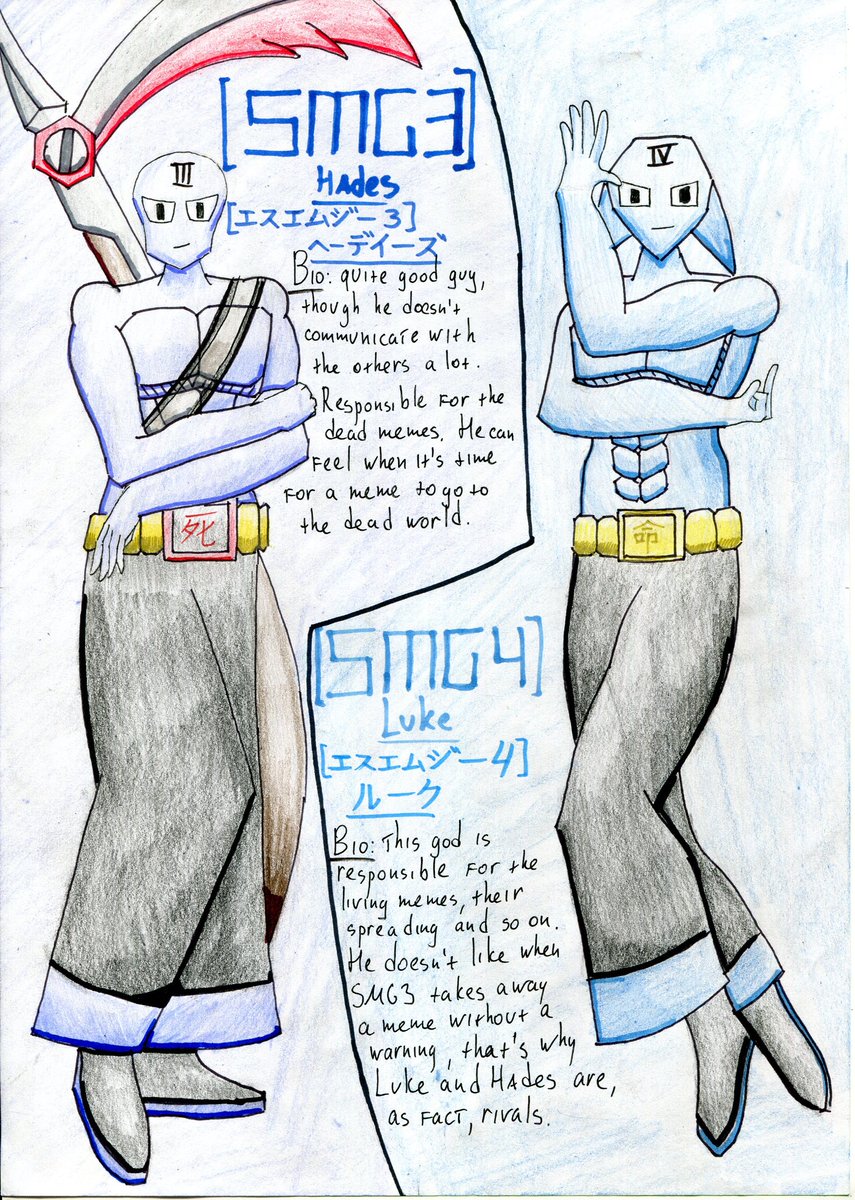 III
[SMG3]
HAdes
[エスエムジー3]
ヘーデイーズ
Bio: quite good guy,
though he doesn't
communicate with
the others a lot.
Responsible for the
dead memes. He can
feel when it's time
for a meme to go to
the dead world.
死
IV
命
[SMG4]
Luke
[エスエムジー4]
ルーク
Bio: This god is
responsible for the
living memes, their
spreading and so on.
He doesn't like when
SMG3 takes away
a meme without a
warning, that's why
Luke and HAdes are,
as fact, rivals.